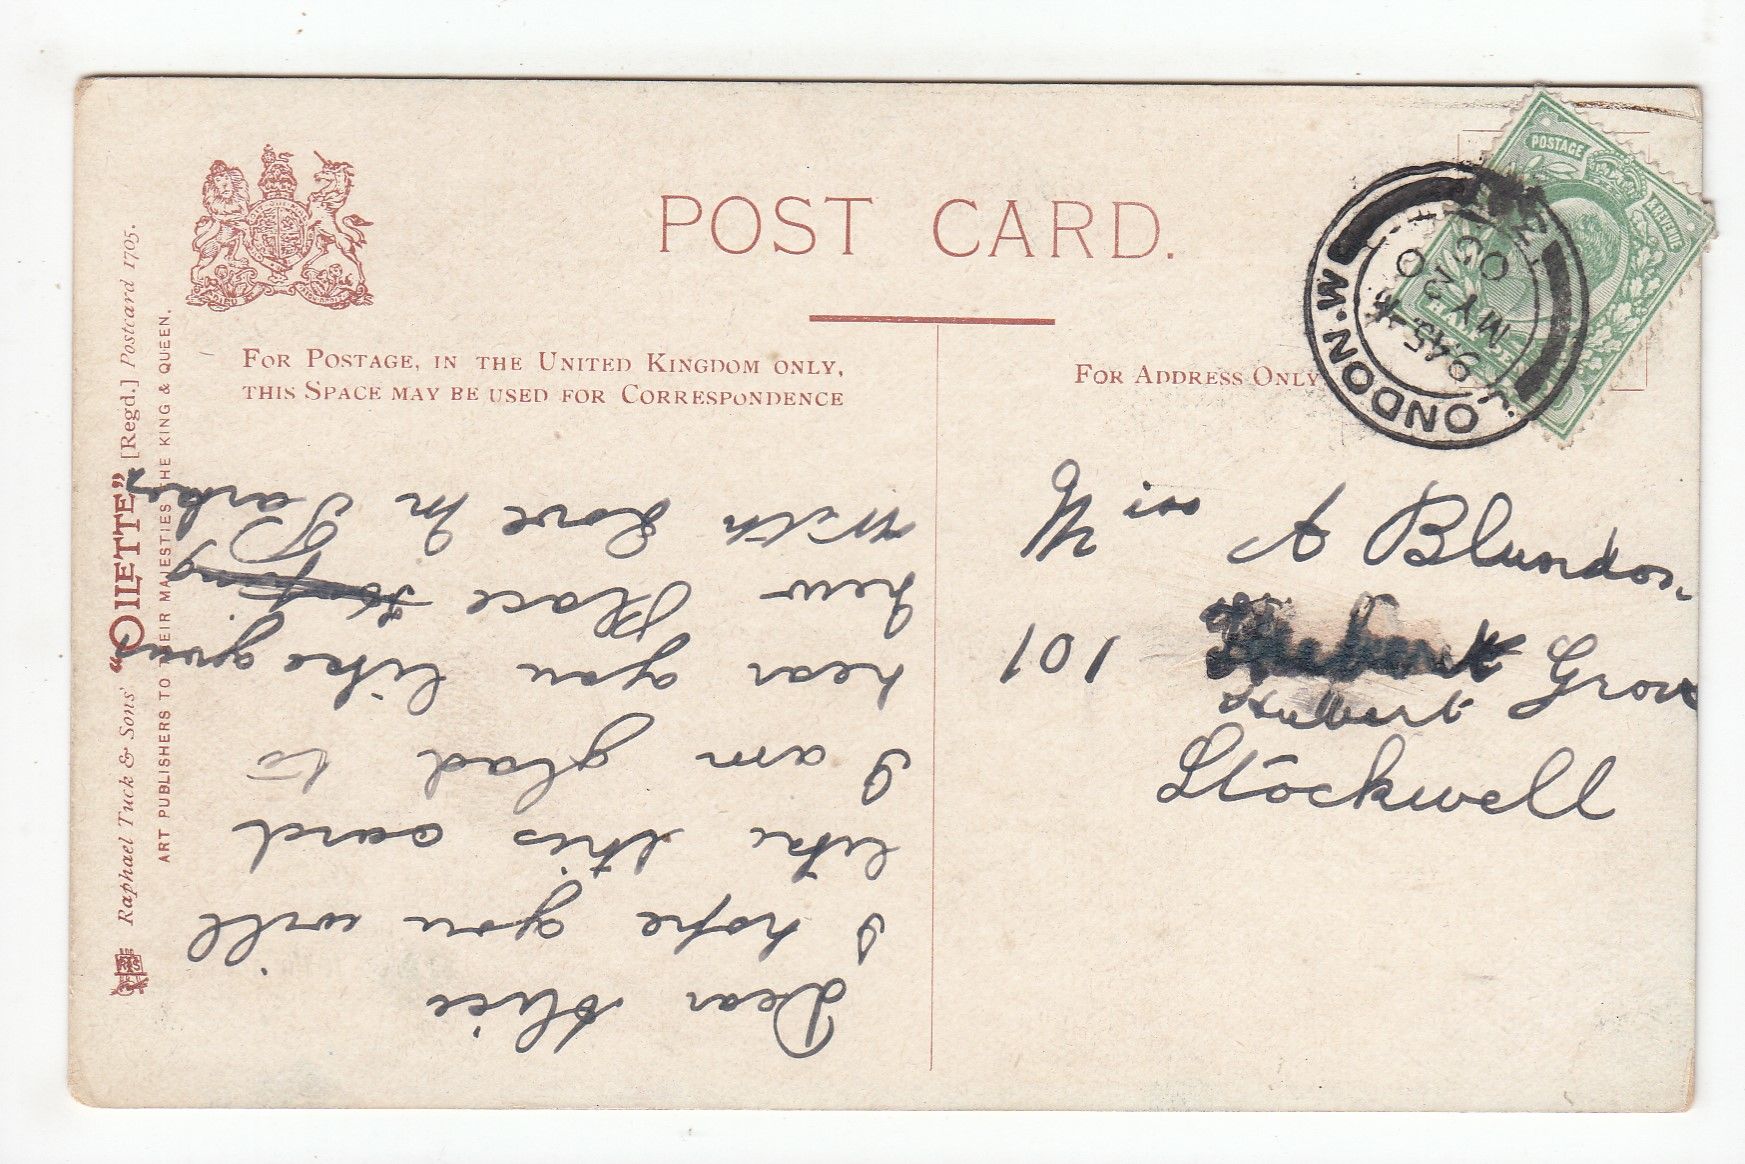 POST CARD.
FOR POSTAGE, IN THE UNITED KINGDOM ONLY,
THIS SPACE MAY BE USED FOR CORRESPONDENCE
FOR ADDRESS ONLY
Raphael Tuck & Sons' "OILETTE" [Regd.] Postcard 1705.
ART PUBLISHERS TO THEIR MAJESTIES THE KING & QUEEN.
Dear Alice
I hope you will
like this card
I am glad to
hear you like your
new Place
With Love M Parker
Miss A
101 Grove
Stockwell
POSTAGE & REVENUE
LONDON.W
9.45
MY 23
07